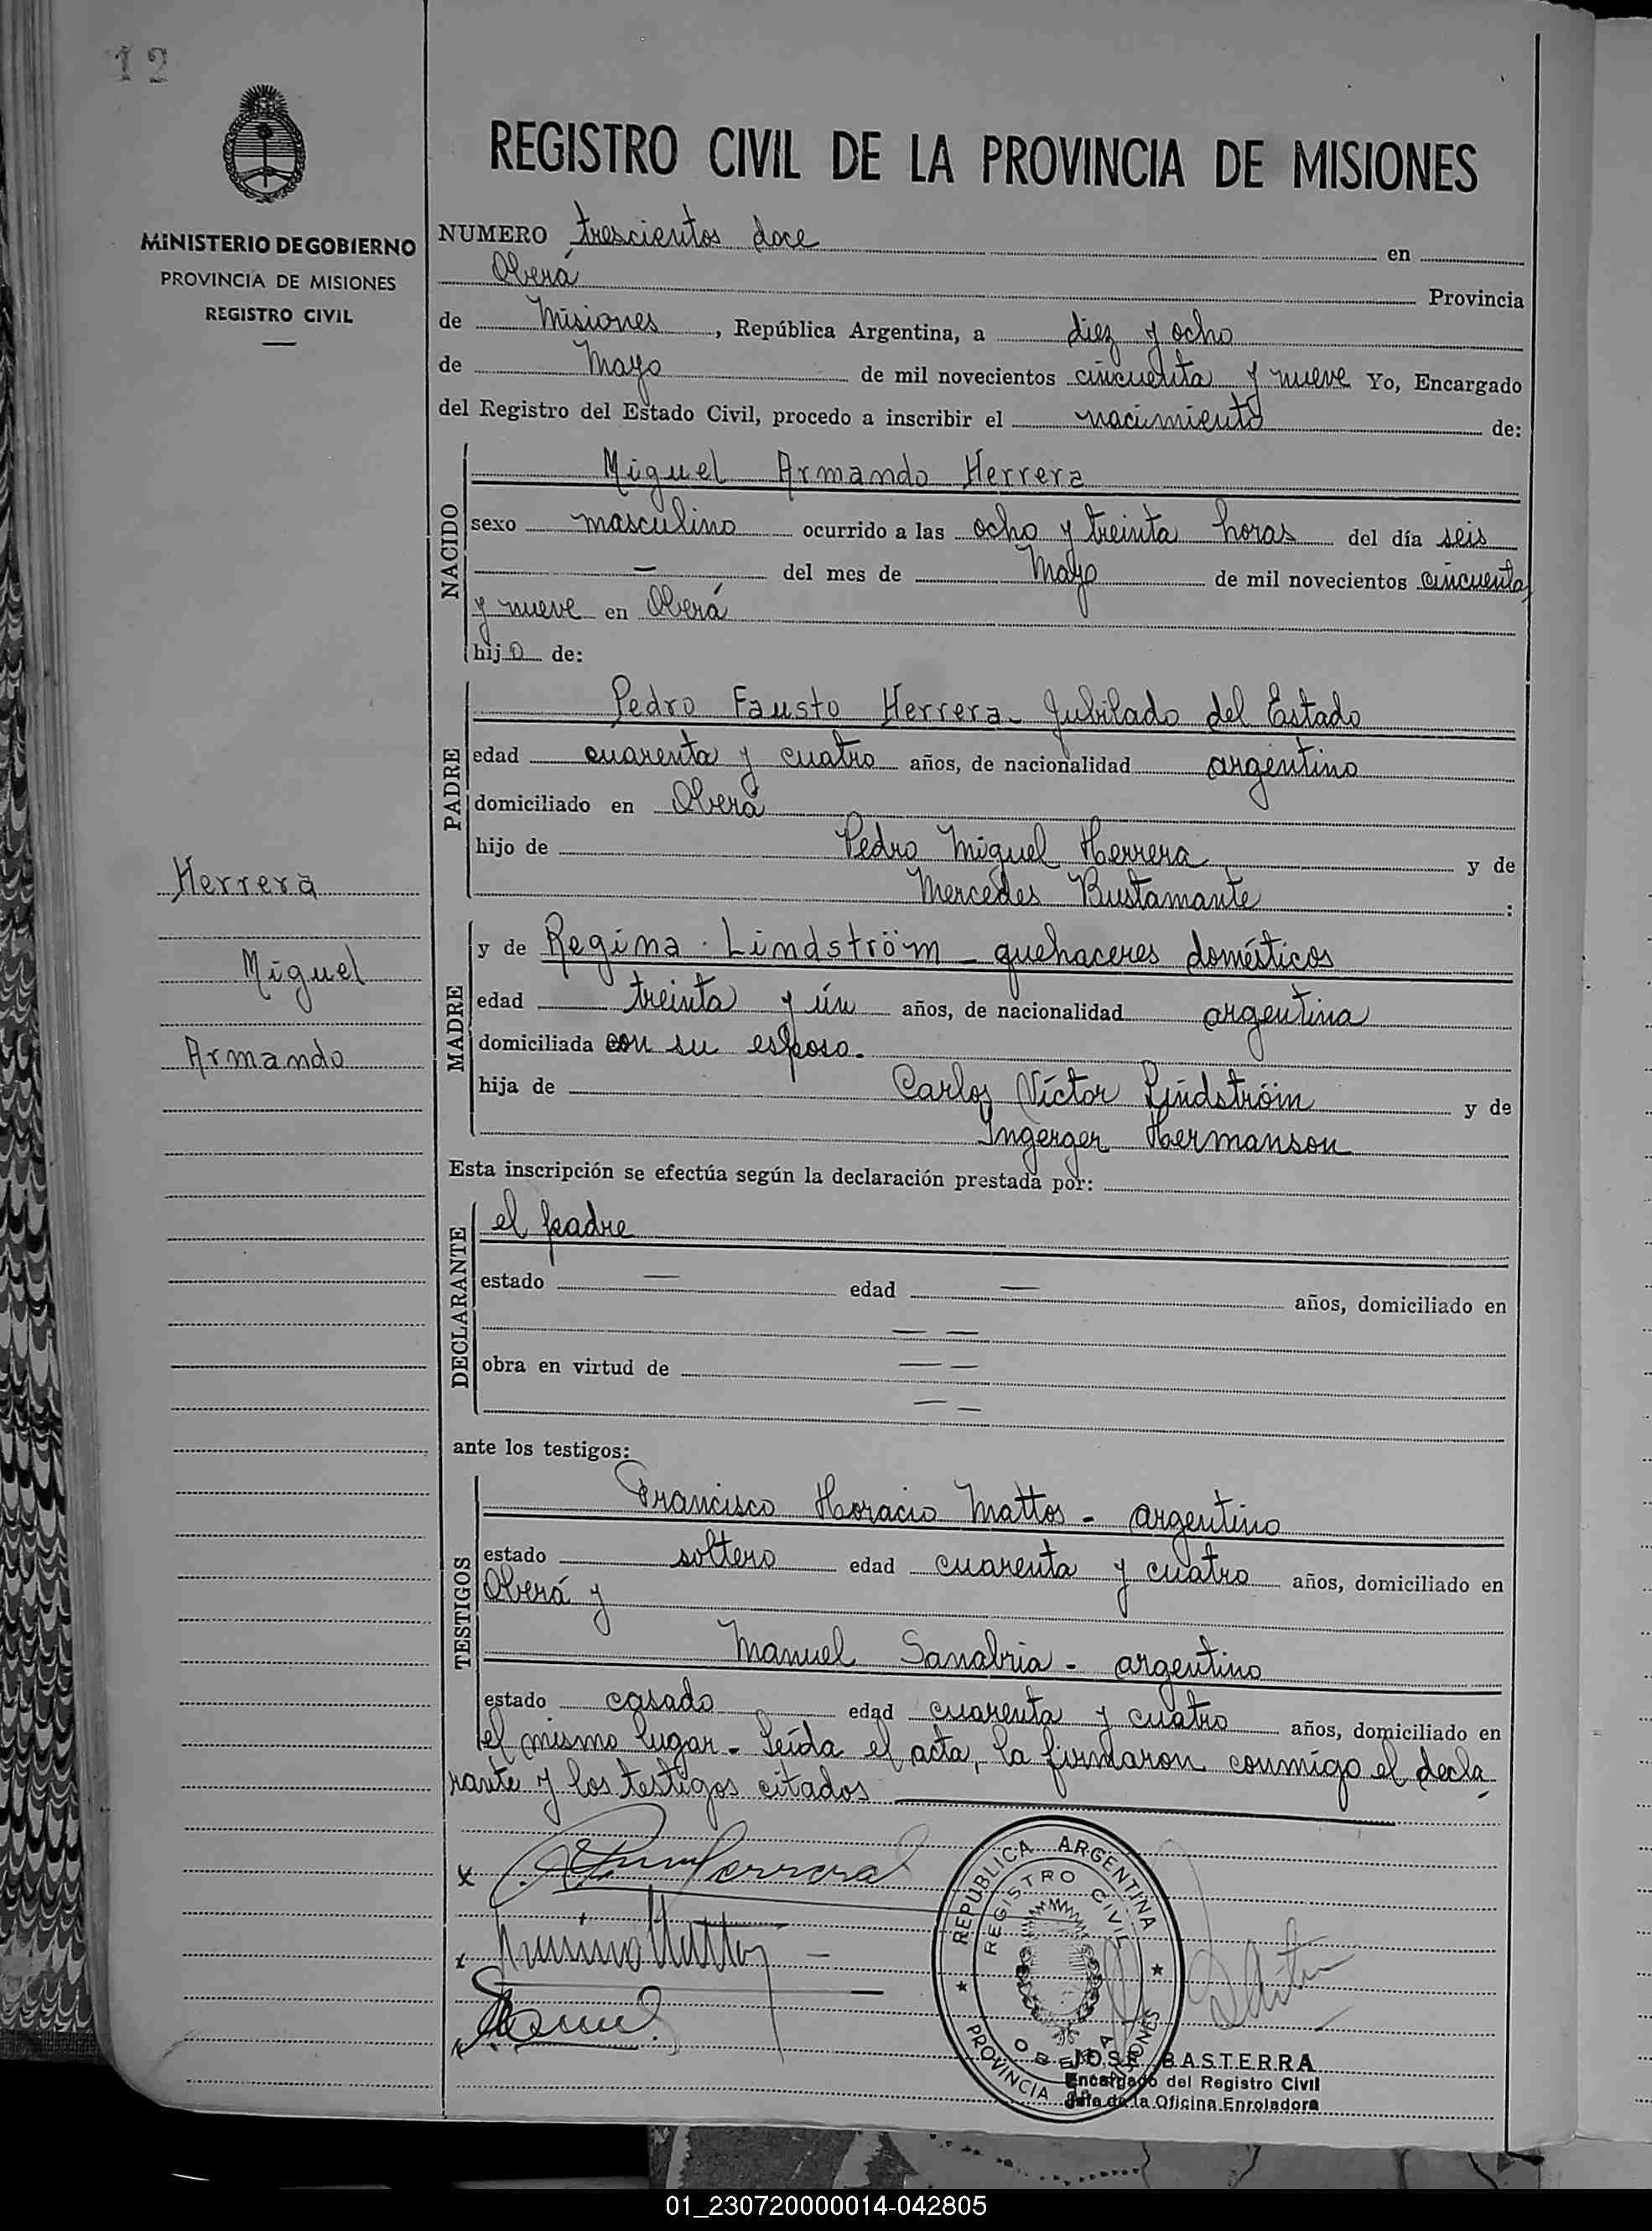 12
REGISTRO CIVIL DE LA PROVINCIA DE MISIONES
MINISTERIO DE GOBIERNO
PROVINCIA DE MISIONES
REGISTRO CIVIL
NUMERO trescientos doce en
Oberá Provincia
de Misiones, República Argentina, a diez y ocho
de Mayo de mil novecientos cincuenta y nueve Yo, Encargado
del Registro del Estado Civil, procedo a inscribir el nacimiento de:
NACIDO
Miguel Armando Herrera
sexo masculino ocurrido a las ocho y treinta horas del día seis
— del mes de Mayo de mil novecientos cincuenta
y nueve en Oberá
hijo de:
PADRE
Pedro Fausto Herrera - Jubilado del Estado
edad cuarenta y cuatro años, de nacionalidad argentino
domiciliado en Oberá
hijo de Pedro Miguel Herrera y de
Mercedes Bustamante :
Herrera
Miguel
Armando
MADRE
y de Regina Lindström - quehaceres domésticos
edad treinta y ún años, de nacionalidad argentina
domiciliada con su esposo.
hija de Carlos Víctor Lindström y de
Ingerger Hermanson
Esta inscripción se efectúa según la declaración prestada por:
DECLARANTE
el padre
estado — edad — años, domiciliado en
— —
obra en virtud de — —
— —
ante los testigos:
TESTIGOS
Francisco Horacio Mattos - argentino
estado soltero edad cuarenta y cuatro años, domiciliado en
Oberá y
Manuel Sanabria - argentino
estado casado edad cuarenta y cuatro años, domiciliado en
el mismo lugar - Leída el acta, la firmaron conmigo el decla-
rante y los testigos citados
REPUBLICA ARGENTINA
REGISTRO CIVIL
OBERA
PROVINCIA MISIONES
JOSE BASTERRA
Encargado del Registro Civil
Jefe de la Oficina Enroladora
01_230720000014-042805